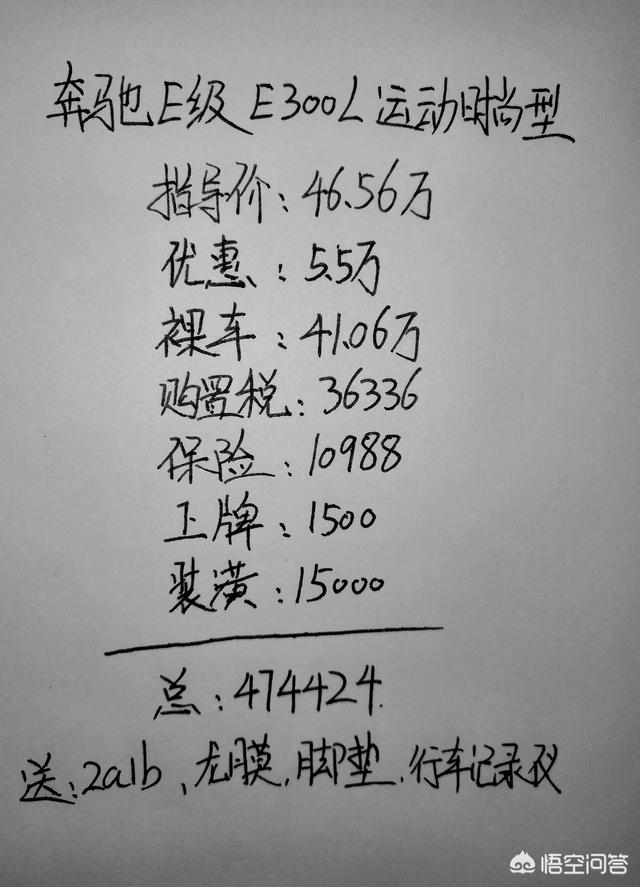 奔驰E级 E300L 运动时尚型
指导价: 46.56万
优惠: 5.5万
裸车: 41.06万
购置税: 36336
保险: 10988
上牌: 1500
装潢: 15000
总: 474424.
送: 2a1b、龙膜.脚垫.行车记录仪
悟空问答